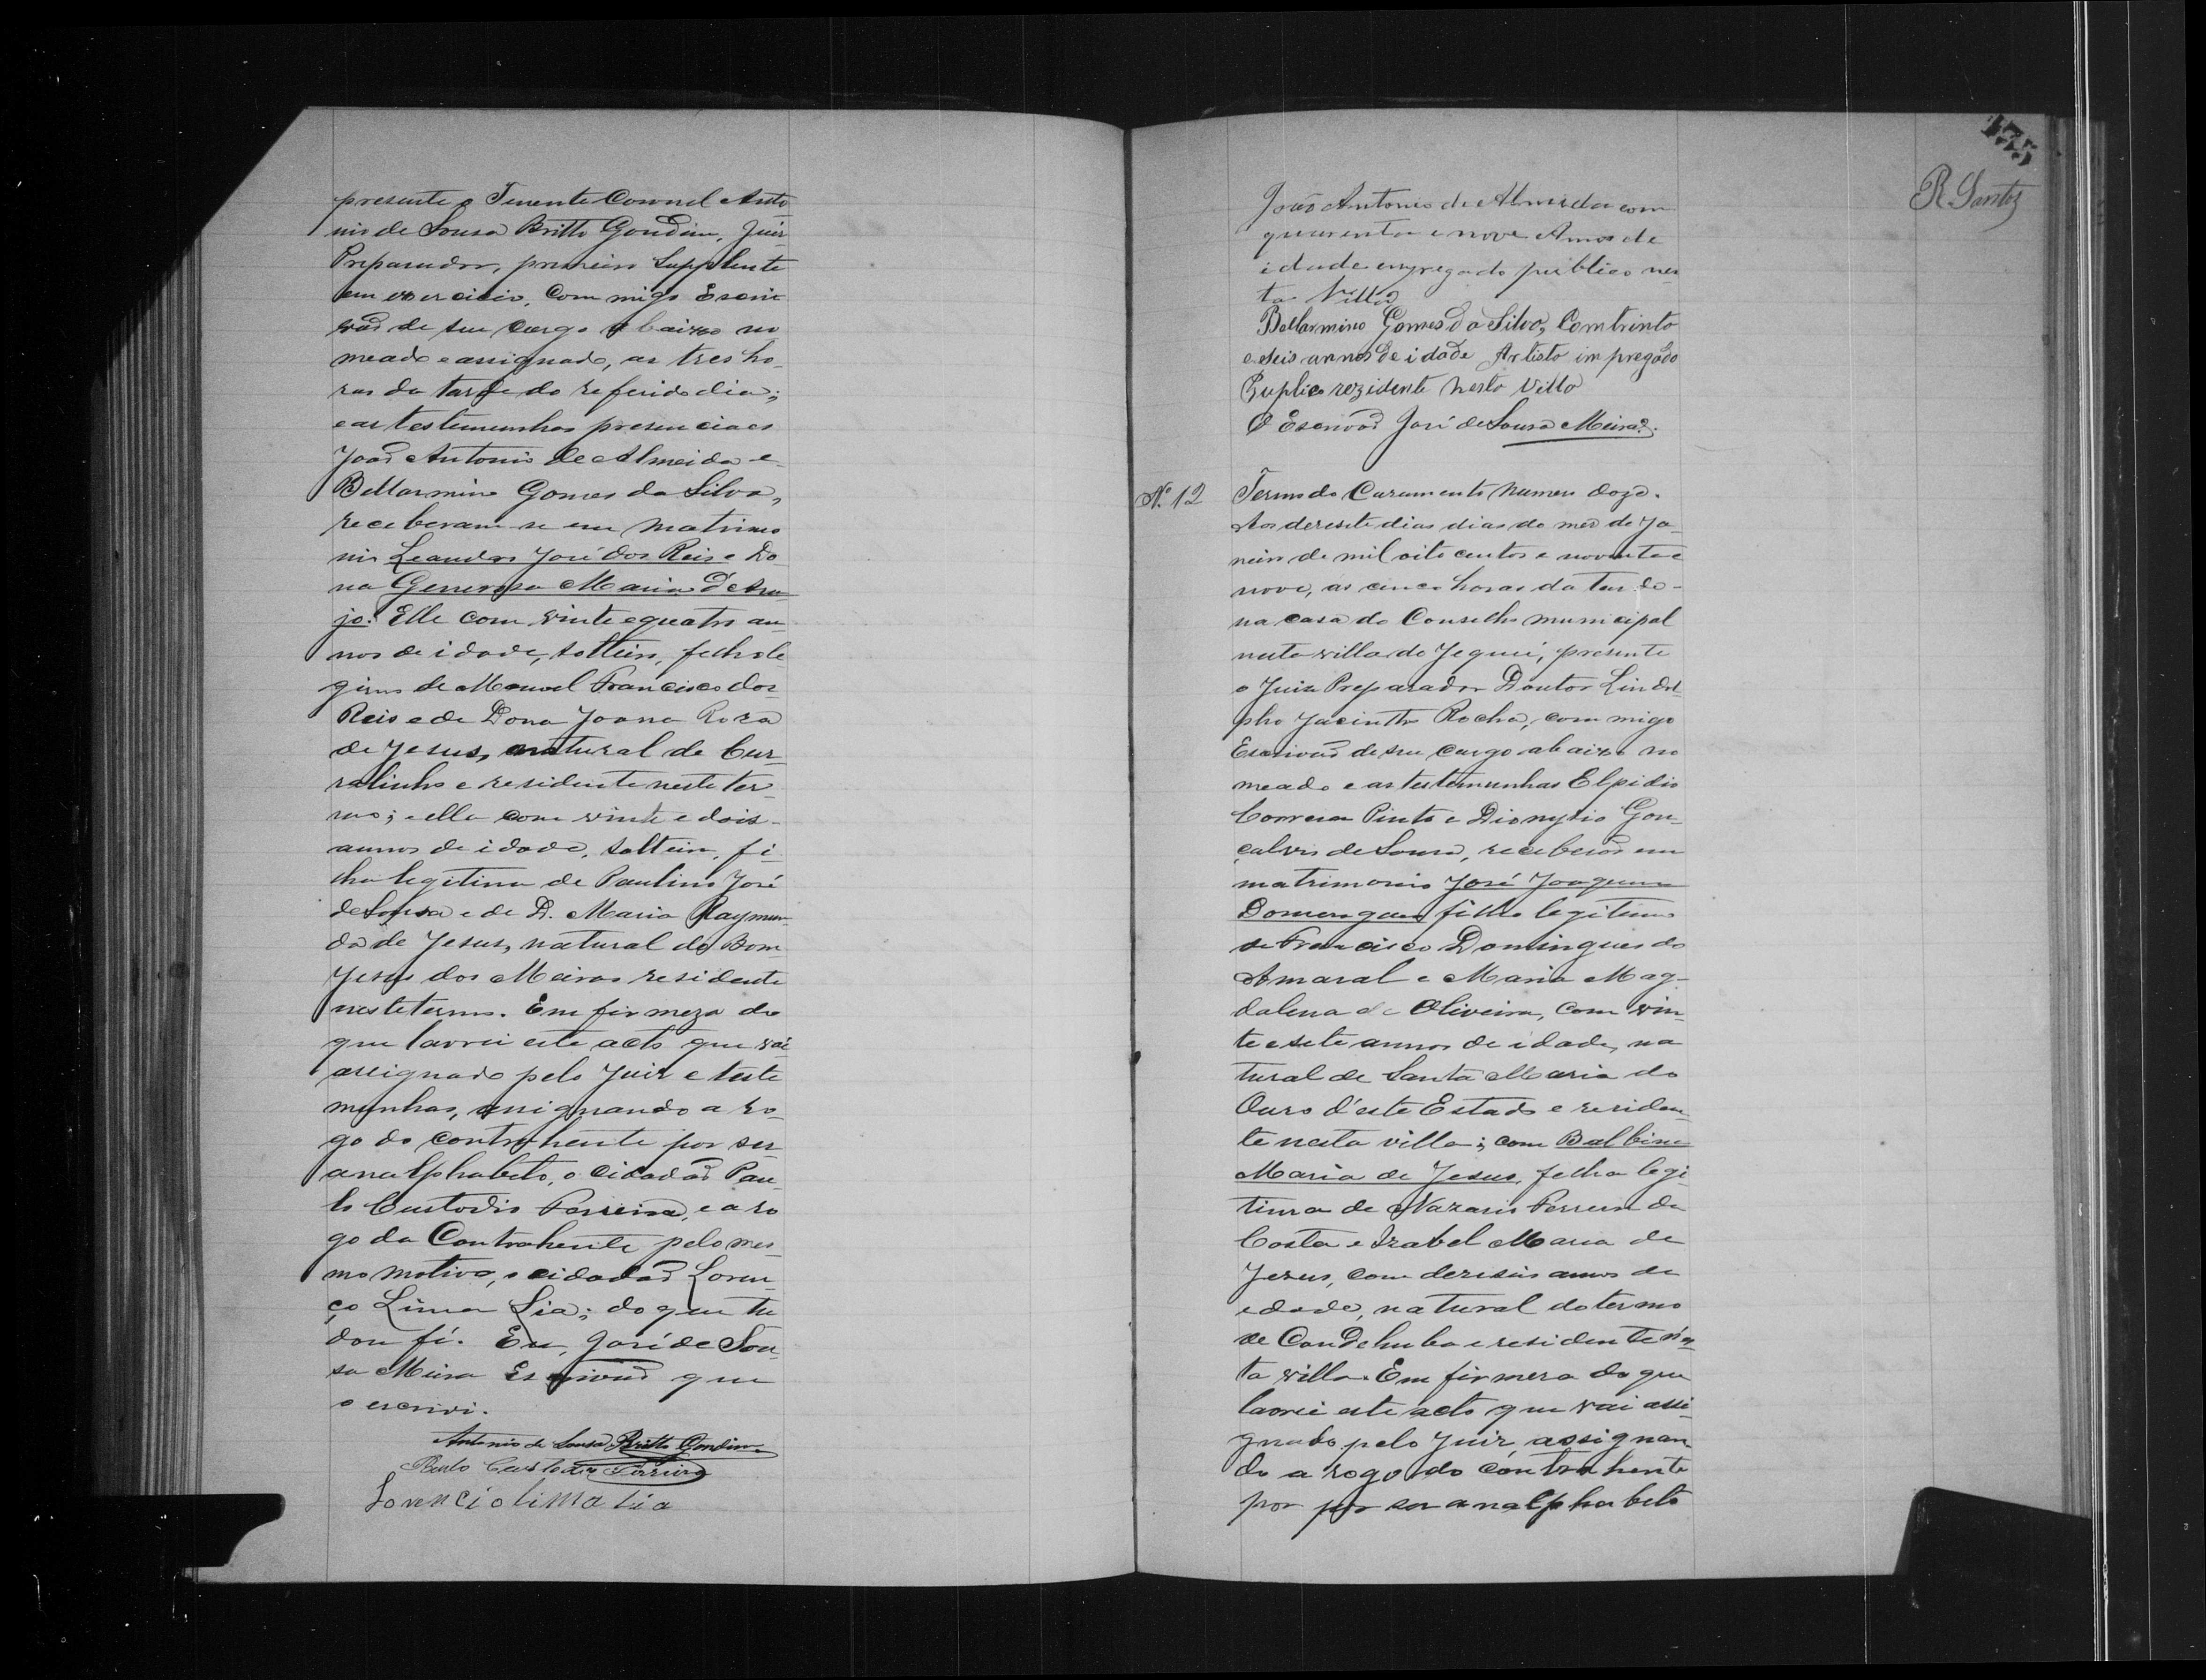 presente o Tenente Coronel Anto
nio de Sousa Britto Gondim, Juiz
Preparador, primeiro Supplente
em exercicio, Com migo Escri
vaõ de seu cargo abaixo no
meado e assignado, as tres ho
ras da tarde do referido dia;
e as testemunhas presenciaes
Joaõ Antonio de Almeida e
Bellarmino Gomes da Silva,
receberam-se em matrimo
nio Leandro José dos Reis e Do
na Generosa Maria de Arau
jo. Elle com vinte e quatro an-
nos de idade, solteiro, filho le
gitimo de Manoel Francisco dos
Reis e de Dona Joana Roza
de Jesus, natural de Cur-
ralinho e residente neste ter
mo; e ella com vinte e dois
annos de idade, solteira, fi-
lha legitima de Paulino José
de Sousa e de D. Maria Raymun-
da de Jesus, natural do Bom
Jesus dos Meiras residente
neste termo. Em firmeza do
que lavrei este acto que vai
assignado pelo Juiz e teste
munhas, assignando a ro-
go do contrahente por ser
analphabeto, o cidadaõ Pau-
lo Custodio Ferreira, e a ro
go da Contrahente pelo mes-
mo motivo, o cidadaõ Loren-
ço Lima Lia; do que tu
dou fé. Eu, José de Sou-
sa Meira Escrivaõ que
o escrevi.
Antonio de Sousa Britto Gondim
Paulo Custodio Ferreira
Lorencio lima lia
175
R. Santos
Joaõ Antonio de Almeida com
quarenta e nove Annos de
idade empregado publico nes
ta Villa
Bellarmino Gomes da Silva, Com trinta
e seis annos de idade Artista impregado
Puplico rezidente nesta Villa
O Escrivaõ José de Sousa Meira.
Nº. 12
Termo de Casamento numero doze.
Aos desesete dias dias do mes de Ja-
neiro de mil oito centos e noventa e
nove, as cinco horas da tarde
na casa do Conselho municipal
nesta villa de Jequié, presente
o Juiz Preparador Doutor Lindol-
pho Jacintho Rocha, com migo
Escrivaõ de seu cargo abaixo no
meado e as testemunhas Elpidio
Correia Pinto e Dionysio Gon-
çalves de Sousa, receberaõ em
matrimonio José Joaquim
Domingues filho legitimo
de Francisco Domingues do
Amaral e Maria Mag-
dalena de Oliveira, com vin-
te e sete annos de idade, na
tural de Santa Maria do
Ouro d'este Estado e residen-
te nesta villa; com Balbina
Maria de Jesus, filha legi-
tima de Nazario Ferreira da
Costa e Izabel Maria de
Jesus, com deseseis annos de
edade, natural do termo
de Condehuba e residente n'es
ta villa. Em firmeza do que
lavrei este acto que vai assi-
gnado pelo Juiz, assignan-
do a rogo do contrahente
por por ser analphabeto